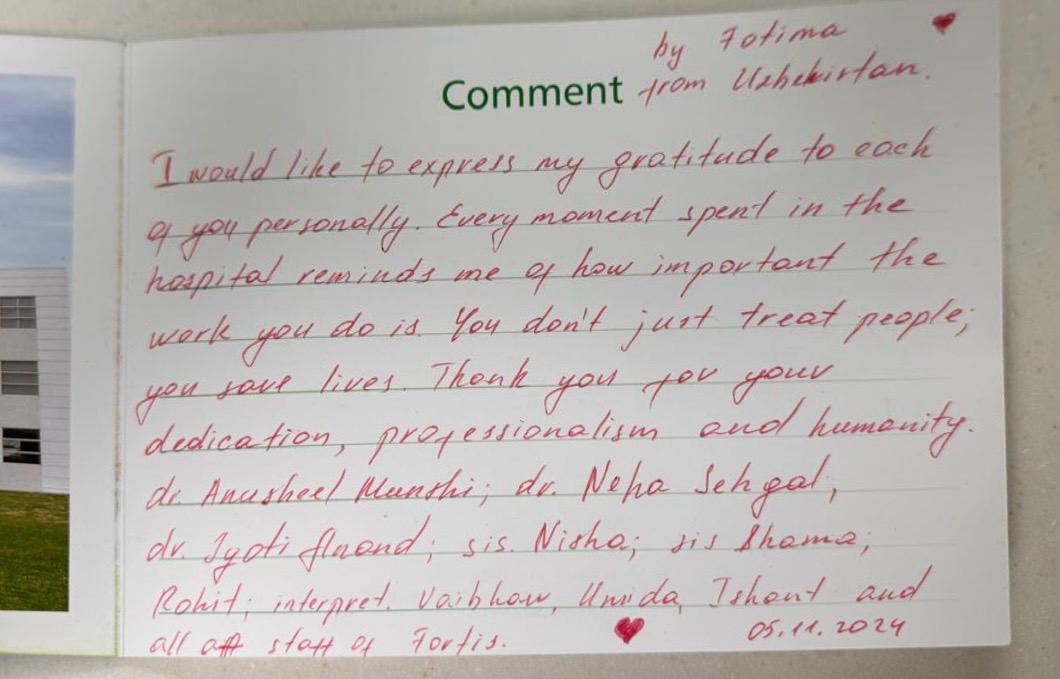 by Fotima
Comment from Uzbekistan.
I would like to express my gratitude to each
of you personally. Every moment spent in the
hospital reminds me of how important the
work you do is. You don't just treat people;
you save lives. Thank you for your
dedication, professionalism and humanity.
dr. Anusheel Munshi; dr. Neha Sehgal,
dr. Jyoti Anand; sis. Nisha; sis Shama;
Rohit; interpret. Vaibhaw, Umida, Ishant and
all staff of Fortis. 05.11.2024